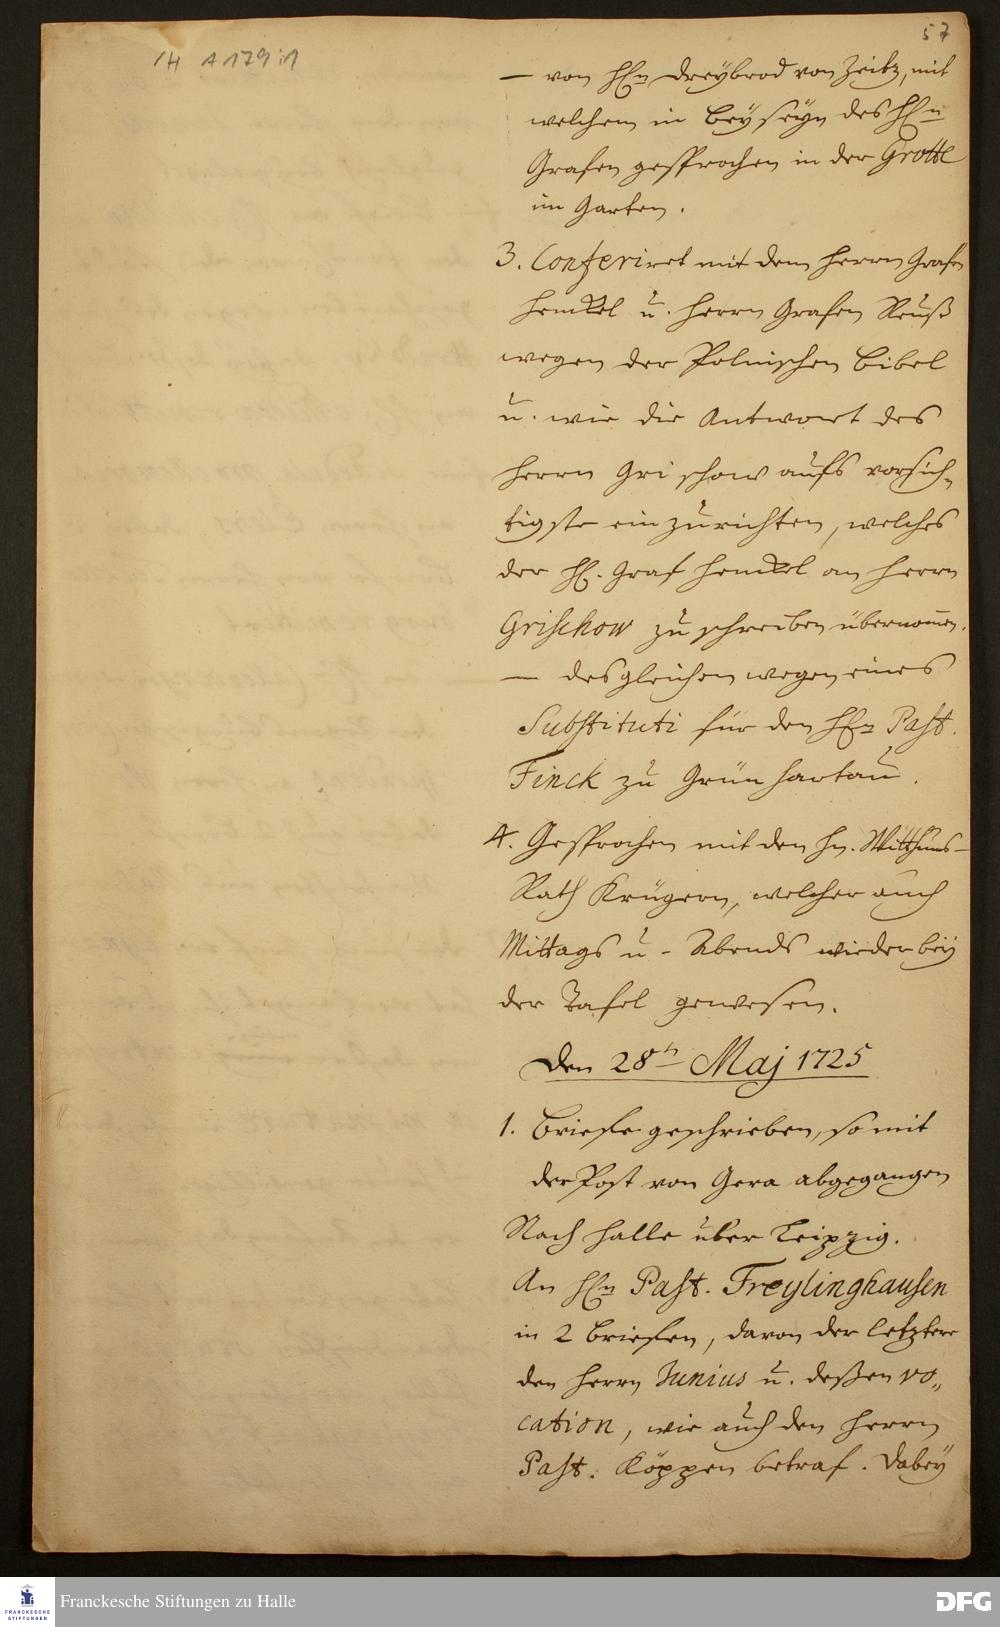 57
1H A 179:1
— von HEn Dreybrod von Zeitz, mit
welchem in beyseyn des HEn
Grafen gesprochen in der Grotte
im Garten.
3. Conferiret mit dem Herrn Grafen
Henckel u. Herrn Grafen Reuß
wegen der Polnischen Bibel
u. wie die Antwort des
Herrn Grischow aufs vorsich-
tigste einzurichten, welches
der HE. Graf Henckel an Herrn
Grischow zu schreiben übernommen.
— desgleichen wegen eines
Substituti für den HEn Past.
Finck zu Grünhartau.
4. Gesprochen mit den Hn.
Rath Krügern, welcher auch
Mittags u. Abends wieder bey
der Tafel gewesen.
Den 28ten Maj 1725
1. Briefe geschrieben, so mit
der Post von Gera abgegangen
Nach Halle über Leipzig.
An HEn Past. Freylinghausen
in 2 Briefen, davon der letztere
den Herrn Junius u. deßen vo-
cation, wie auch den Herrn
Past. Köppen betraf. Dabey
FRANCKESCHE
STIFTUNGEN
Franckesche Stiftungen zu Halle
DFG